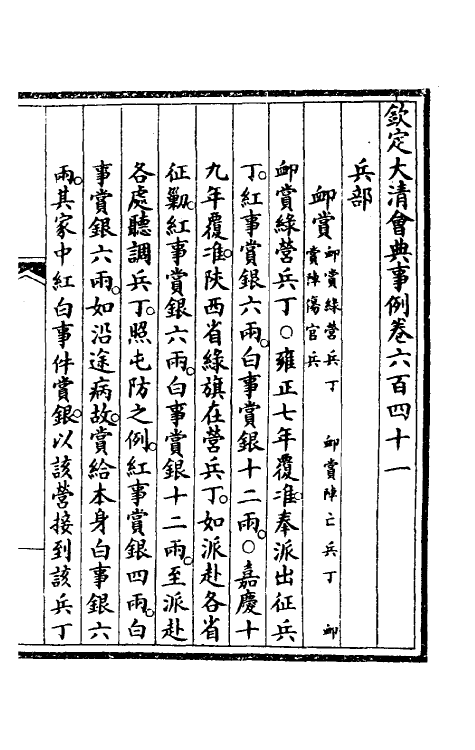 欽定大清會典事例卷六百四十一
兵部
卹賞 卹賞綠營兵丁 卹賞陣亡兵丁 卹
賞陣傷官兵
卹賞綠營兵丁○雍正七年覆准奉派出征兵
丁。紅事賞銀六兩。白事賞銀十二兩。○嘉慶十
九年覆准。陝西省綠旗在營兵丁。如派赴各省
征勦。紅事賞銀六兩。白事賞銀十二兩。至派赴
各處聽調兵丁。照屯防之例。紅事賞銀四兩。白
事賞銀六兩。如沿途病故。賞給本身白事銀六
兩。其家中紅白事件賞銀。以該營接到該兵丁